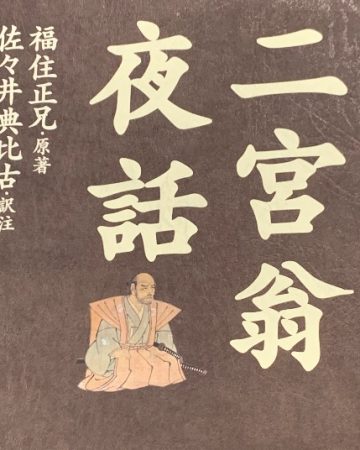 二宮翁
夜話
福住正兄 原著
佐々井典比古・訳注